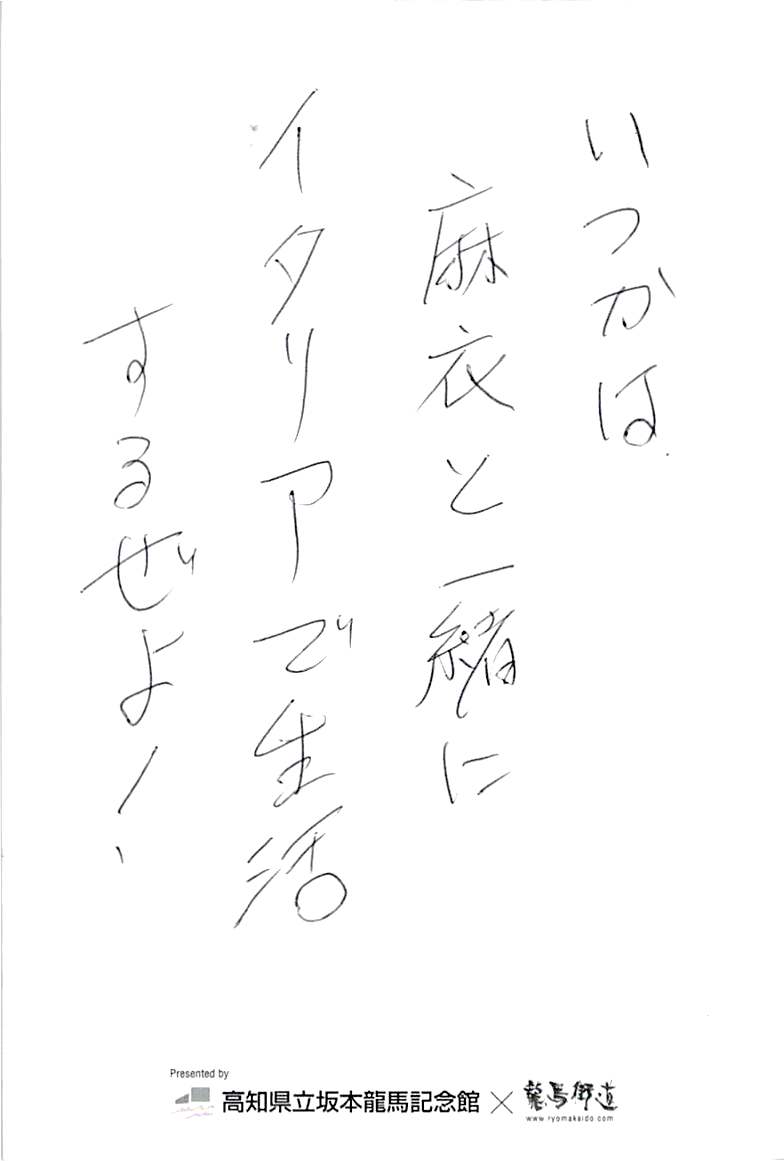 いつかは
麻衣と一緒に
イタリアで生活
するぜよ！
Presented by
高知県立坂本龍馬記念館 × 龍馬街道
www.ryomakaido.com